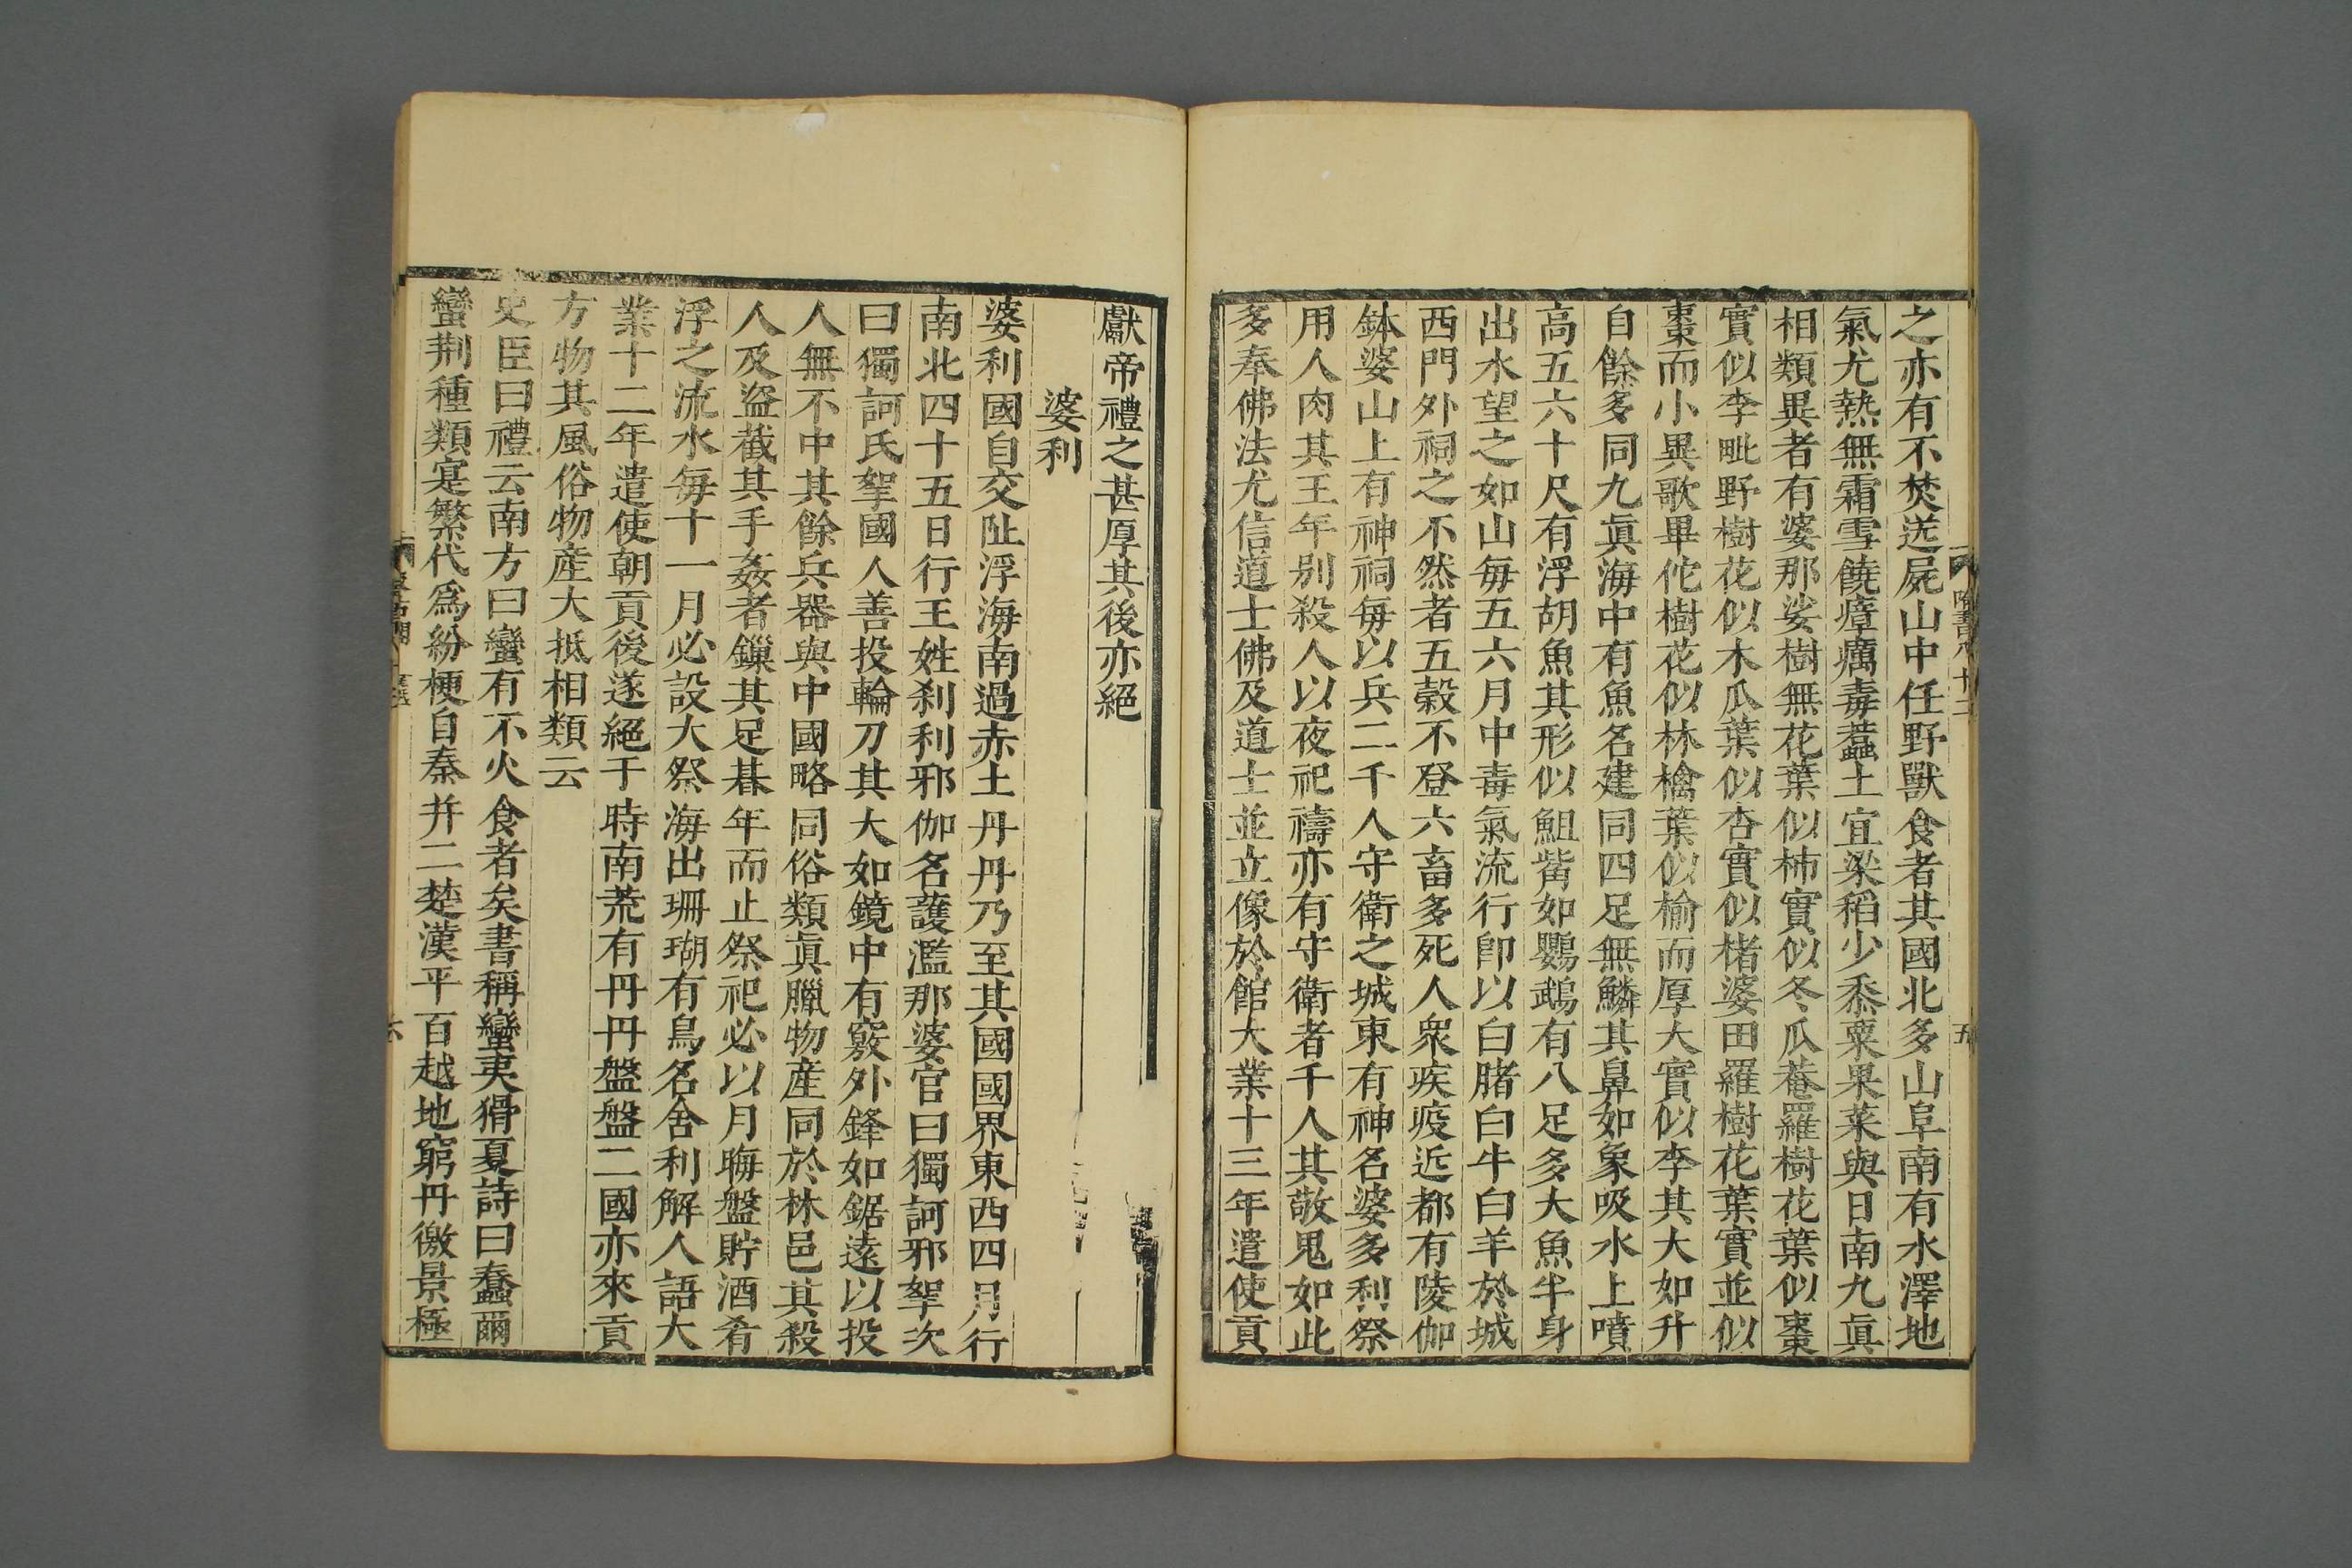 之亦有不焚送屍山中任野獸食者其國北多山阜南有水澤地
氣尤熱無霜雪饒瘴癘毒蠚土宜粱稻少黍粟果菜與日南九眞
相類異者有婆那娑樹無花葉似柿實似冬瓜菴羅樹花葉似棗
實似李毗野樹花似木瓜葉似杏實似楮婆田羅樹花葉實並似
棗而小異歌畢佗樹花似林檎葉似榆而厚大實似李其大如升
自餘多同九眞海中有魚名建同四足無鱗其鼻如象吸水上噴
高五六十尺有浮胡魚其形似䱉觜如鸚鵡有八足多大魚半身
出水望之如山每五六月中毒氣流行卽以白豬白牛白羊於城
西門外祠之不然者五穀不登六畜多死人衆疾疫近都有陵伽
鉢婆山上有神祠每以兵二千人守衛之城東有神名婆多利祭
用人肉其王年别殺人以夜祀禱亦有守衛者千人其敬鬼如此
多奉佛法尤信道士佛及道士並立像於館大業十三年遣使貢
獻帝禮之甚厚其後亦絕
婆利
婆利國自交阯浮海南過赤土丹丹乃至其國國界東西四月行
南北四十五日行王姓刹利邪伽名護濫那婆官曰獨訶邪挐次
曰獨訶氏挐國人善投輪刀其大如鏡中有竅外鋒如鋸遠以投
人無不中其餘兵器與中國略同俗類眞臘物産同於林邑其殺
人及盜截其手姦者鏁其足朞年而止祭祀必以月晦盤貯酒肴
浮之流水每十一月必設大祭海出珊瑚有鳥名舍利解人語大
業十二年遣使朝貢後遂絕于時南荒有丹丹盤盤二國亦來貢
方物其風俗物産大抵相類云
史臣曰禮云南方曰蠻有不火食者矣書稱蠻夷猾夏詩曰蠢爾
蠻荆種類寔繁代爲紛梗自秦并二楚漢平百越地窮丹徼景極
隋書八十二
五
六